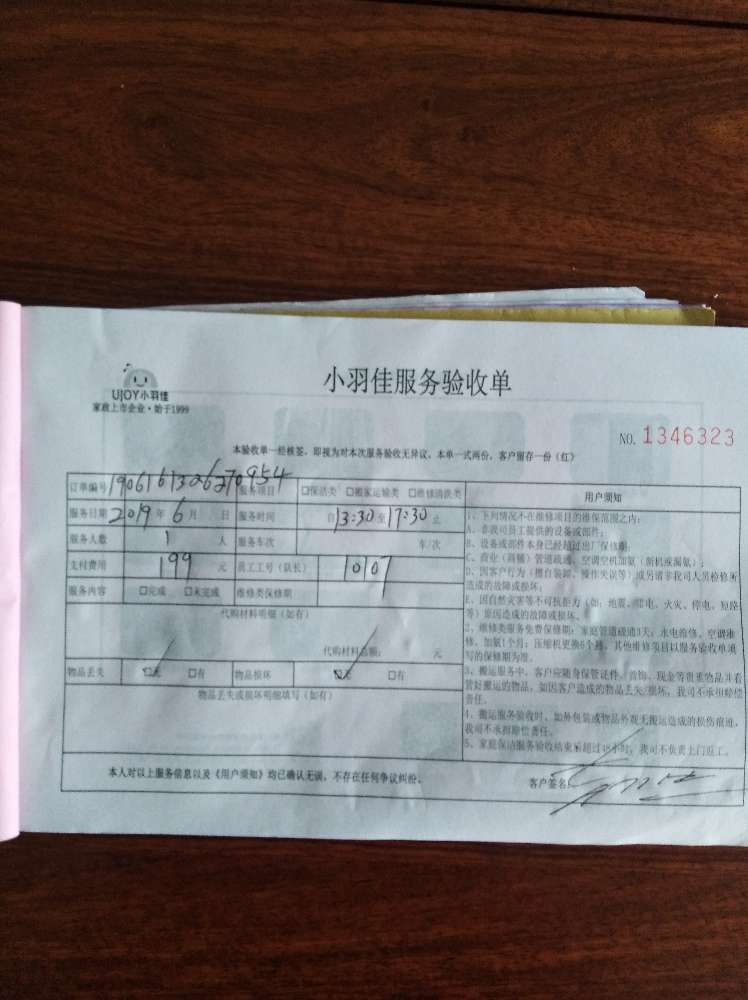 UJOY小羽佳
家政上市企业·始于1999
小羽佳服务验收单
NO. 1346323
本验收单一经核签，即视为对本次服务验收无异议，本单一式两份，客户留存一份（红）
订单编号 1906161326270954 服务项目 □保洁类 □搬家运输类 □维修清洗类 用户须知
服务日期 2019 年 6 月 日 服务时间 自 13:30 至 17:30 止
服务人数 1 人 服务车次 车/次
支付费用 199 元 员工工号（队长） 10107
服务内容 □完成 □未完成 维修类保修期
代购材料明细（如有）
代购材料总额： 元
物品丢失 □无 □有 物品损坏 □无 □有
物品丢失或损坏明细填写（如有）
1、下列情况不在维修项目的维保范围之内：
A、非我司员工提供的设备或部件；
B、设备或部件本身已经超过出厂保修期；
C、商业（商铺）管道疏通、空调空机加氨（新机或漏氨）；
D、因客户行为（擅自装卸、操作失误等）或另请非我司人员检修所
造成的故障或损坏；
E、因自然灾害等不可抗拒力（如：地震、雷电、火灾、停电、短路
等）原因造成的故障或损坏。
2、维修类服务免费保修期：家庭管道疏通3天，水电维修、空调维
修、加氨1个月；压缩机更换6个月，其他维修项目以服务验收单填
写的保修期为准。
3、搬运服务中，客户应随身保管证件、首饰、现金等贵重物品并看
管好搬运的物品，如因客户造成的物品丢失/损坏，我司不承担赔偿
责任。
4、搬运服务验收时，如外包装或物品外观无搬运造成的损伤痕迹，
我司不承担赔偿责任。
5、家庭保洁服务验收结束后超过48小时，我司不负责上门返工。
本人对以上服务信息以及《用户须知》均已确认无误，不存在任何争议纠纷。 客户签名：